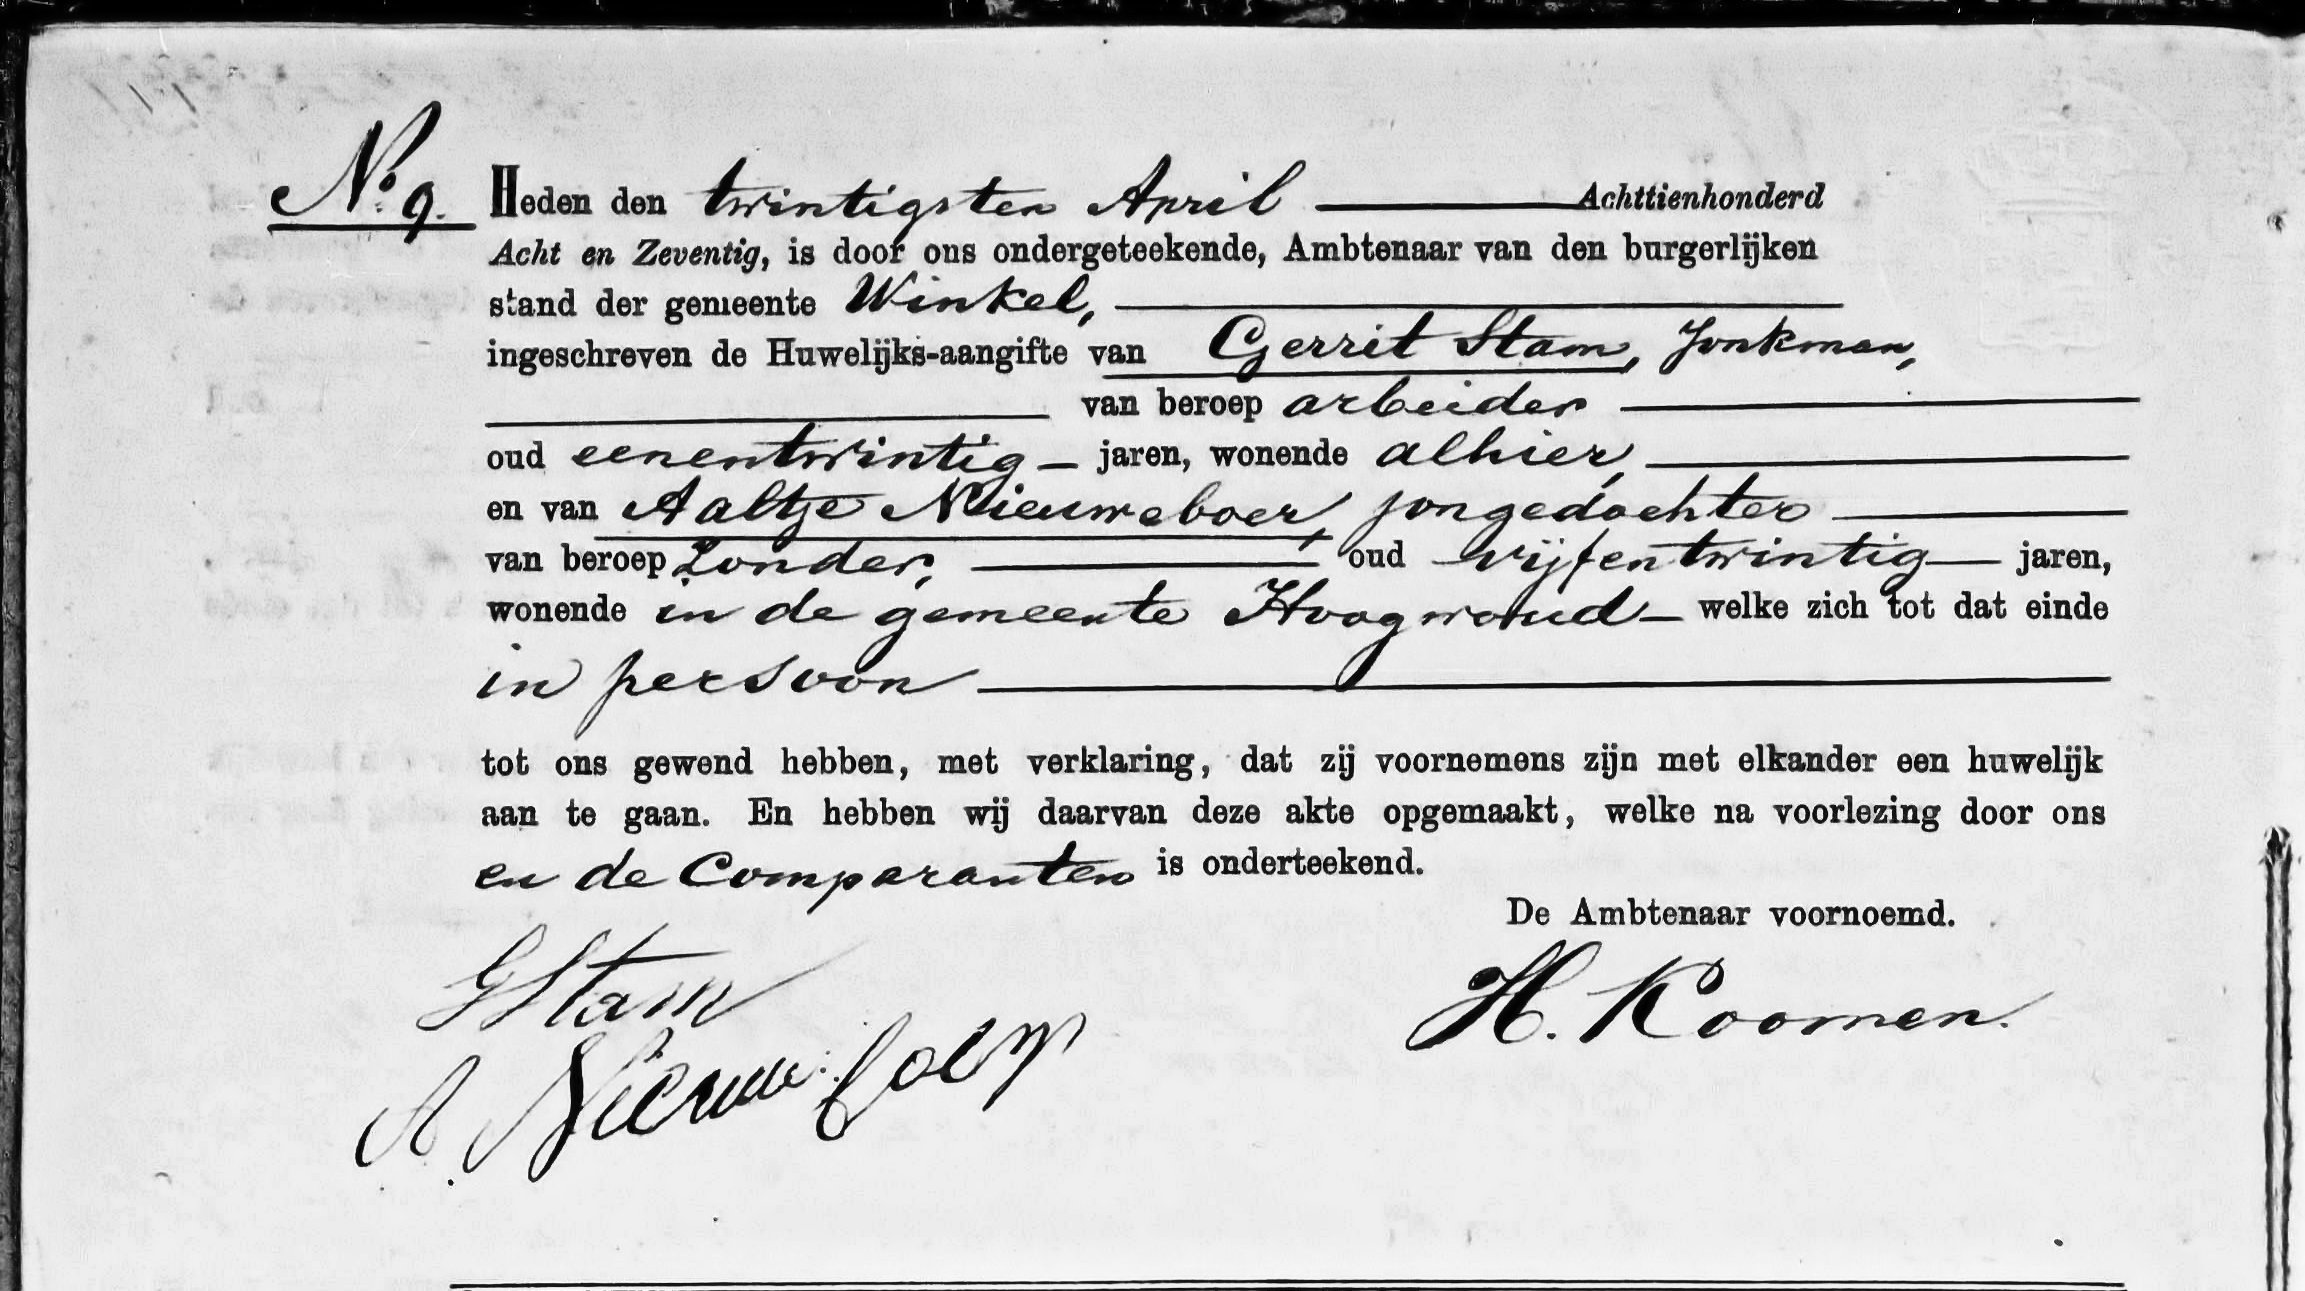 No. 9. Heden den twintigsten April Achttienhonderd
Acht en Zeventig, is door ons ondergeteekende, Ambtenaar van den burgerlijken
stand der gemeente Winkel,
ingeschreven de Huwelijks-aangifte van Gerrit Stam, Jonkman,
van beroep arbeider
oud eenentwintig jaren, wonende alhier,
en van Aaltje Nieuweboer, jongedochter
van beroep Zonder, oud vijfentwintig jaren,
wonende in de gemeente Hoogwoud welke zich tot dat einde
in persoon
tot ons gewend hebben, met verklaring, dat zij voornemens zijn met elkander een huwelijk
aan te gaan. En hebben wij daarvan deze akte opgemaakt, welke na voorlezing door ons
en de Comparanten is onderteekend.
De Ambtenaar voornoemd.
G Stam
H. Koomen.
A. Nieuweboer